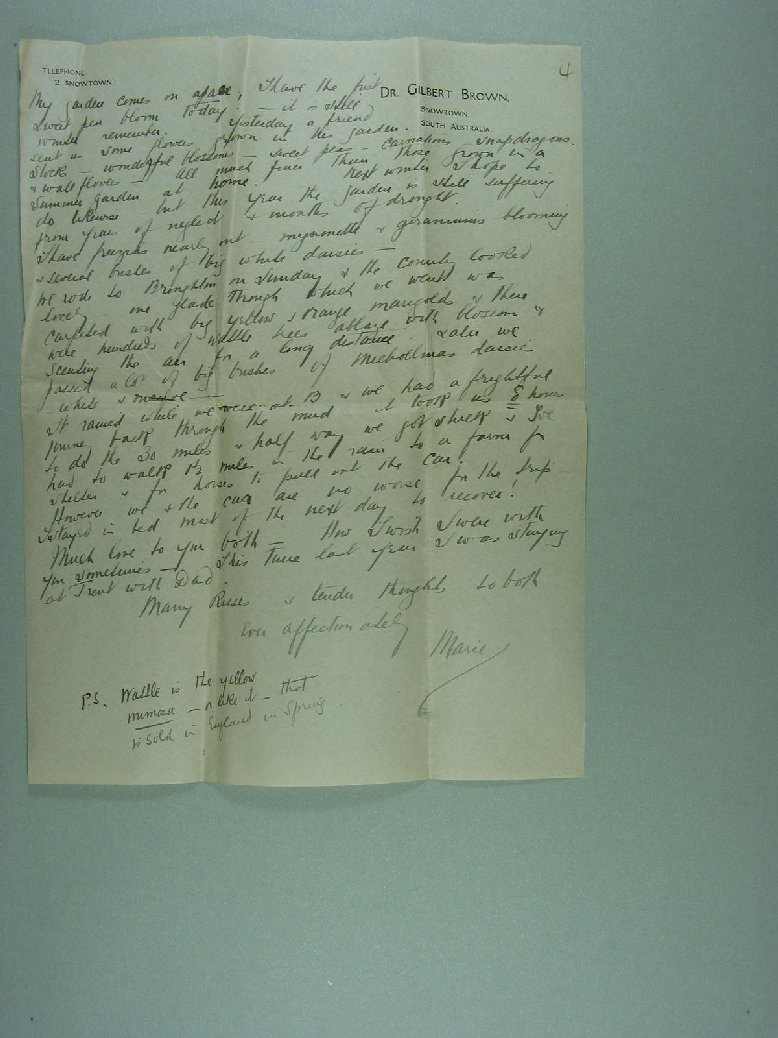 4
TELEPHONE
2 SNOWTOWN.
DR. GILBERT BROWN,
SNOWTOWN,
SOUTH AUSTRALIA
My garden comes on apace, I have the first
sweet pea bloom today - it is still
winter remember. Yesterday a friend
sent us some flowers grown in his garden.
Stocks - wonderful blossoms - sweet peas - carnations - snapdragons
& wallflowers - all much finer than those grown in a
Summer garden at home. Next winter I hope to
do likewise but this year the garden is still suffering
from years of neglect & months of drought.
I have freezias nearly out mignonette & geraniums blooming
& several bushes of big white daisies -
We rode to Broughton on Sunday & the country looked
lovely - one glade through which we went was
carpeted with big yellow & orange marigolds & there
were hundreds of wattle trees ablaze with blossom &
scenting the air for a long distance. & also we
passed a lot of big bushes of Michaelmas daisies
white & mauve -
It rained while we were at B & we had a frightful
journey back through the mud it took us 8 hours
to do the 30 miles & half way we got stuck & I've
had to walk 1½ miles in the rain to a farm for
shelter & for horses to pull out the car.
However we & the car are no worse for the trip -
I stayed in bed most of the next day to recover!
Much love to you both - How I wish I were with
you sometimes - This time last year I was staying
at Trent with Dad.
Many kisses & tender thoughts to both
Ever affectionately
Marie
P.S. Wattle is the yellow
mimosa - or like it - that
is sold in England in Spring.